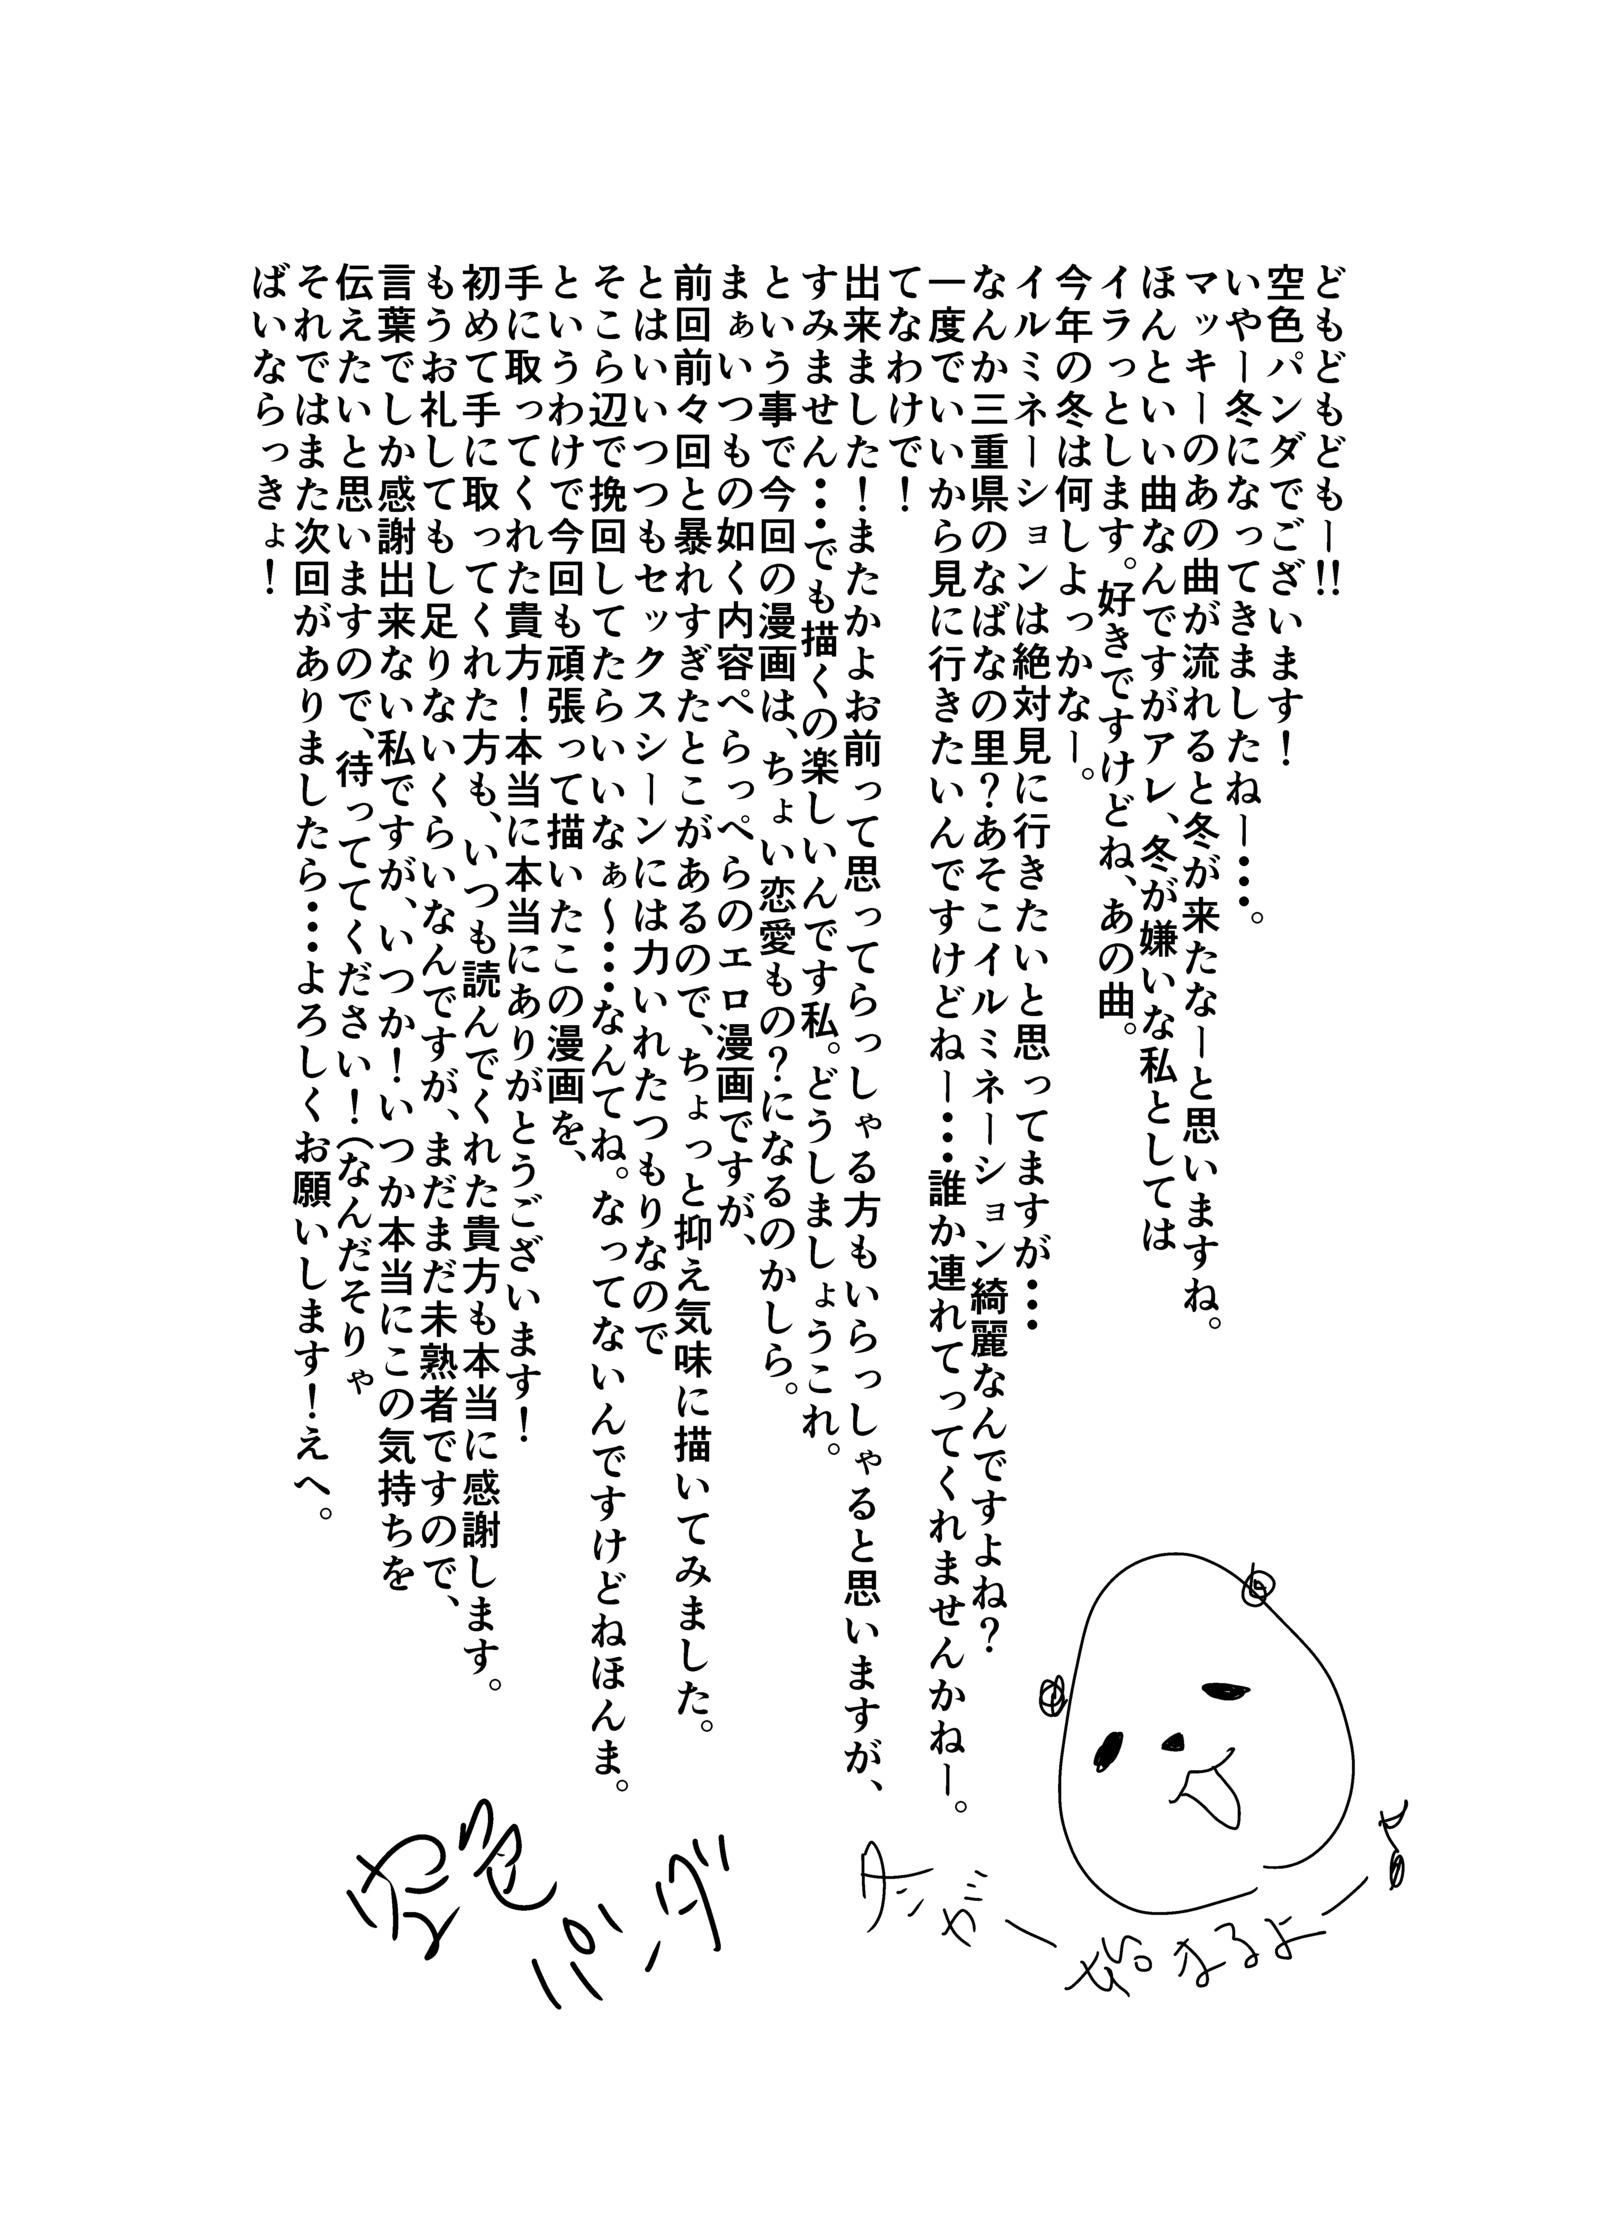 どもどもどもー!!
空色パンダでございます！
いやー冬になってきましたねー・・・。
マッキーのあの曲が流れると冬が来たなーと思いますね。
ほんといい曲なんですがアレ、冬が嫌いな私としては
イラっとします。好きですけどね、あの曲。
今年の冬は何しよっかなー。
イルミネーションは絶対見に行きたいと思ってますが・・・
なんか三重県のなばなの里？あそこイルミネーション綺麗なんですよね？
一度でいいから見に行きたいんですけどねー・・・誰か連れてってくれませんかねー。
てなわけで！
出来ました！またかよお前って思ってらっしゃる方もいらっしゃると思いますが、
すみません・・・でも描くの楽しいんです私。どうしましょうこれ。
という事で今回の漫画は、ちょい恋愛もの？になるのかしら。
まぁいつもの如く内容ぺらっぺらのエロ漫画ですが、
前回前々回と暴れすぎたとこがあるので、ちょっと抑え気味に描いてみました。
とはいいつつもセックスシーンには力いれたつもりなので
そこら辺で挽回してたらいいなぁ～・・・なんてね。なってないんですけどねほんま。
というわけで今回も頑張って描いたこの漫画を、
手に取ってくれた貴方！本当に本当にありがとうございます！
初めて手に取ってくれた方も、いつも読んでくれた貴方も本当に感謝します。
もうお礼してもし足りないくらいなんですが、まだまだ未熟者ですので、
言葉でしか感謝出来ない私ですが、いつか！いつか本当にこの気持ちを
伝えたいと思いますので、待っててください！（なんだそりゃ
それではまた次回がありましたら・・・よろしくお願いします！えへ。
ばいならっきょ！
空色パンダ